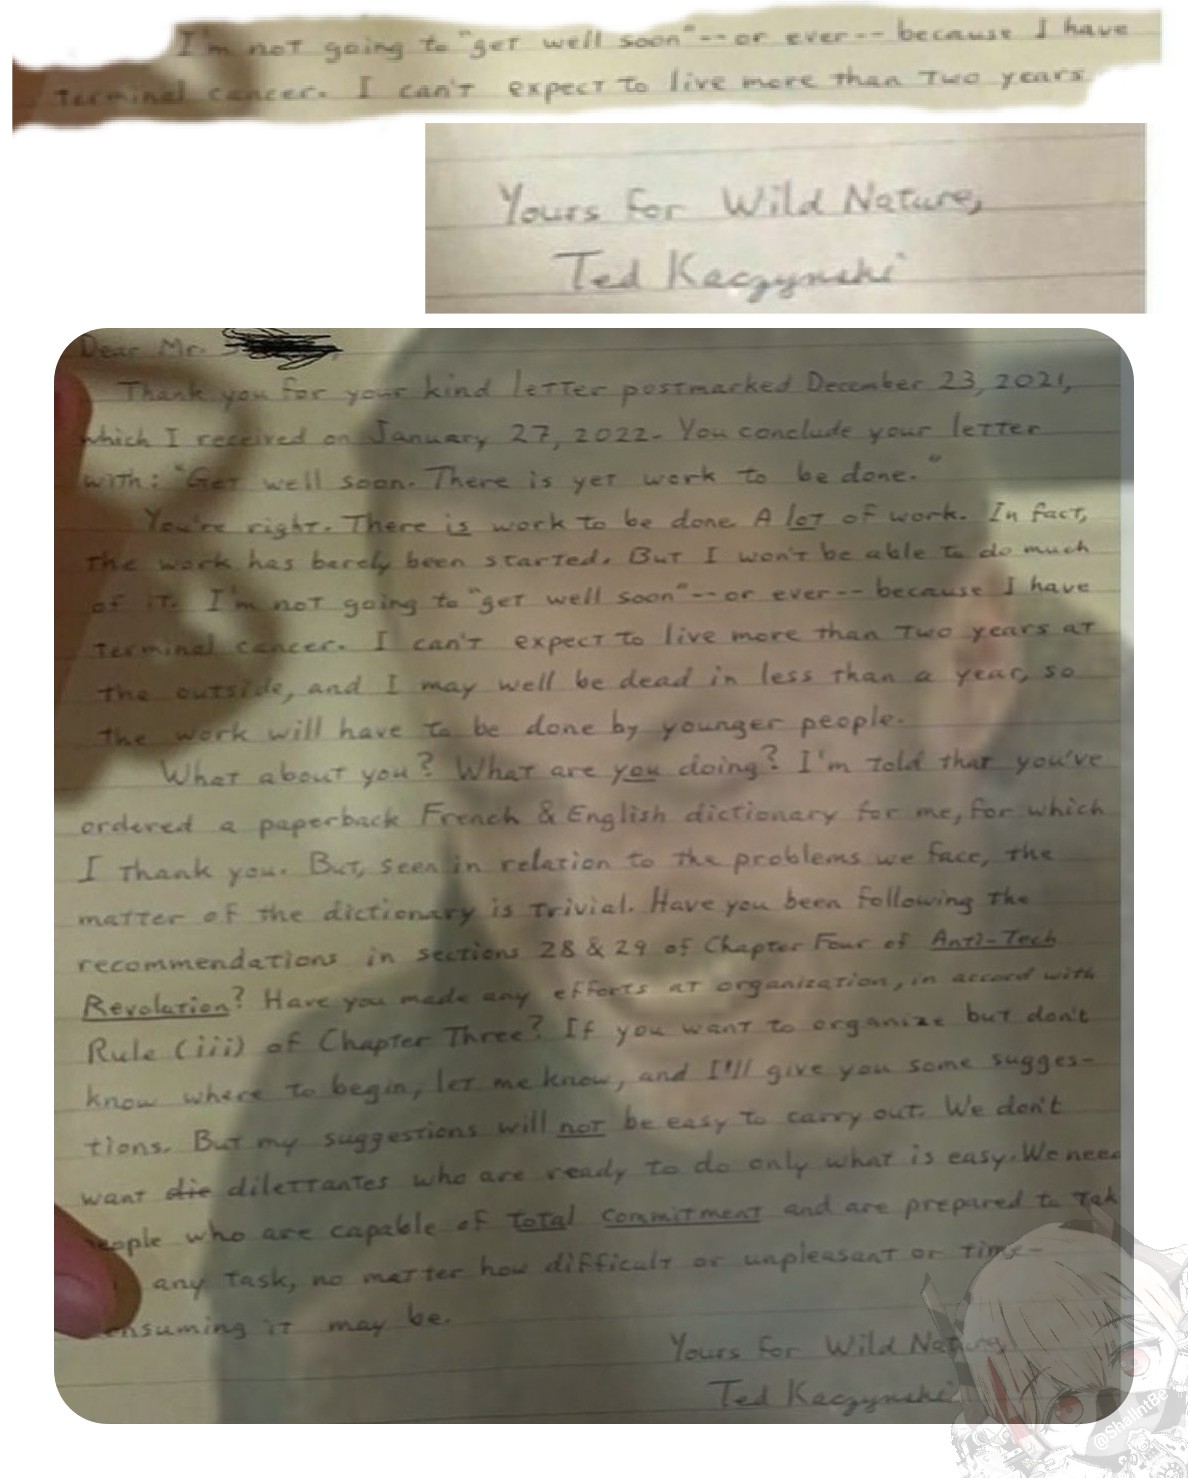 I'm not going to "get well soon"--or ever--because I have
terminal cancer. I can't expect to live more than two years
Yours for Wild Nature,
Ted Kaczynski
Dear Mr.
Thank you for your kind letter postmarked December 23, 2021,
which I received on January 27, 2022. You conclude your letter
with: "Get well soon. There is yet work to be done."
You're right. There is work to be done. A lot of work. In fact,
the work has barely been started. But I won't be able to do much
of it. I'm not going to "get well soon"--or ever--because I have
terminal cancer. I can't expect to live more than two years at
the outside, and I may well be dead in less than a year, so
the work will have to be done by younger people.
What about you? What are you doing? I'm told that you've
ordered a paperback French & English dictionary for me, for which
I thank you. But, seen in relation to the problems we face, the
matter of the dictionary is trivial. Have you been following the
recommendations in sections 28 & 29 of Chapter Four of Anti-Tech
Revolution? Have you made any efforts at organization, in accord with
Rule (iii) of Chapter Three? If you want to organize but don't
know where to begin, let me know, and I'll give you some sugges-
tions. But my suggestions will not be easy to carry out. We don't
want die dilettantes who are ready to do only what is easy. We need
people who are capable of total commitment and are prepared to tak
any task, no matter how difficult or unpleasant or time-
nsuming it may be.
Yours for Wild Nature,
Ted Kaczynski
@ShallntBe